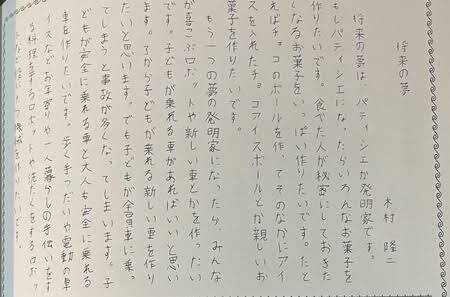 将来の夢
木村 隆二
将来の夢は、パティシエか発明家です。
もしパティシエになったらいろんなお菓子を
作りたいです。食べた人が秘密にしておきた
くなるお菓子をいっぱい作りたいです。たと
えば、チョコのボールを作ってそのなかにアイ
スを入れたチョコアイスボールとか新しいお
菓子を作りたいです。
もう一つの夢の発明家になったら、みんな
が喜こぶロボットや新しい車とかを作ったい
です。子どもが乗れる車があればいいと思い
ます。だから子どもが乗れる新しい車を作り
たいと思います。でも子どもが全員車に乗っ
てしまうと事故が多くなってしまいます。子
どもが安全に乗れる車と大人も安全に乗れる
車を作りたいです。歩く手つだいや電動の車
イスなどお年寄りや一人暮らしの手伝いをす
る料理するロボットや洗たくをするロボッ